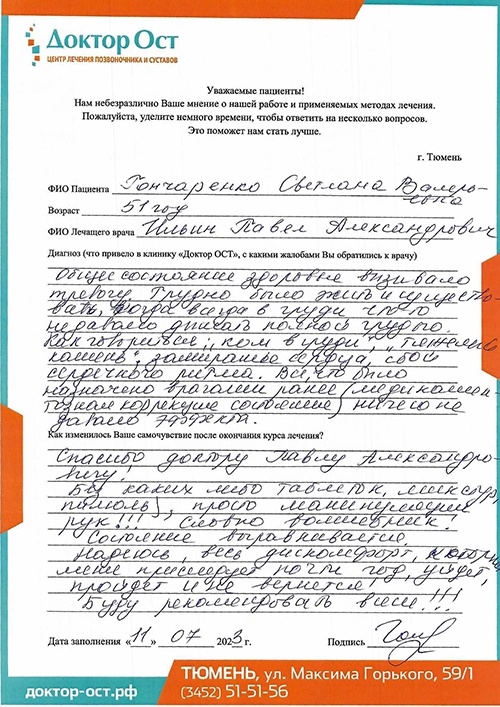 Доктор Ост
ЦЕНТР ЛЕЧЕНИЯ ПОЗВОНОЧНИКА И СУСТАВОВ
Уважаемые пациенты!
Нам небезразлично Ваше мнение о нашей работе и применяемых методах лечения.
Пожалуйста, уделите немного времени, чтобы ответить на несколько вопросов.
Это поможет нам стать лучше.
г. Тюмень
ФИО Пациента Гончаренко Светлана Валерь-
евна
Возраст 51 год
ФИО Лечащего врача Ильин Павел Александрович
Диагноз (что привело в клинику «Доктор ОСТ», с какими жалобами Вы обратились к врачу)
Общее состояние здоровья вызывало
тревогу. Трудно было жить и существо-
вать, когда всегда в груди что-то
не давало дышать полной грудью.
Как говориться, "ком в груди", "тяжелый
камень", замирание сердца, сбой
сердечного ритма. Все что было
назначено врачами ранее (медикамен-
тозная коррекция состояние) ничего не
давало эффекта.
Как изменилось Ваше самочувствие после окончания курса лечения?
Спасибо доктору Павлу Александро-
вичу!
Без каких либо таблеток, микстур,
просто манипуляции
рук!!! Словно волшебник!
Состояние выравнивается.
Надеюсь, весь дискомфорт, который
меня преследует почти год, уйдет,
пройдет и не вернется!
Буду рекомендовать всем!!!
Дата заполнения «11» 07 2023 г. Подпись
доктор-ост.рф
ТЮМЕНЬ, ул. Максима Горького, 59/1
(3452) 51-51-56